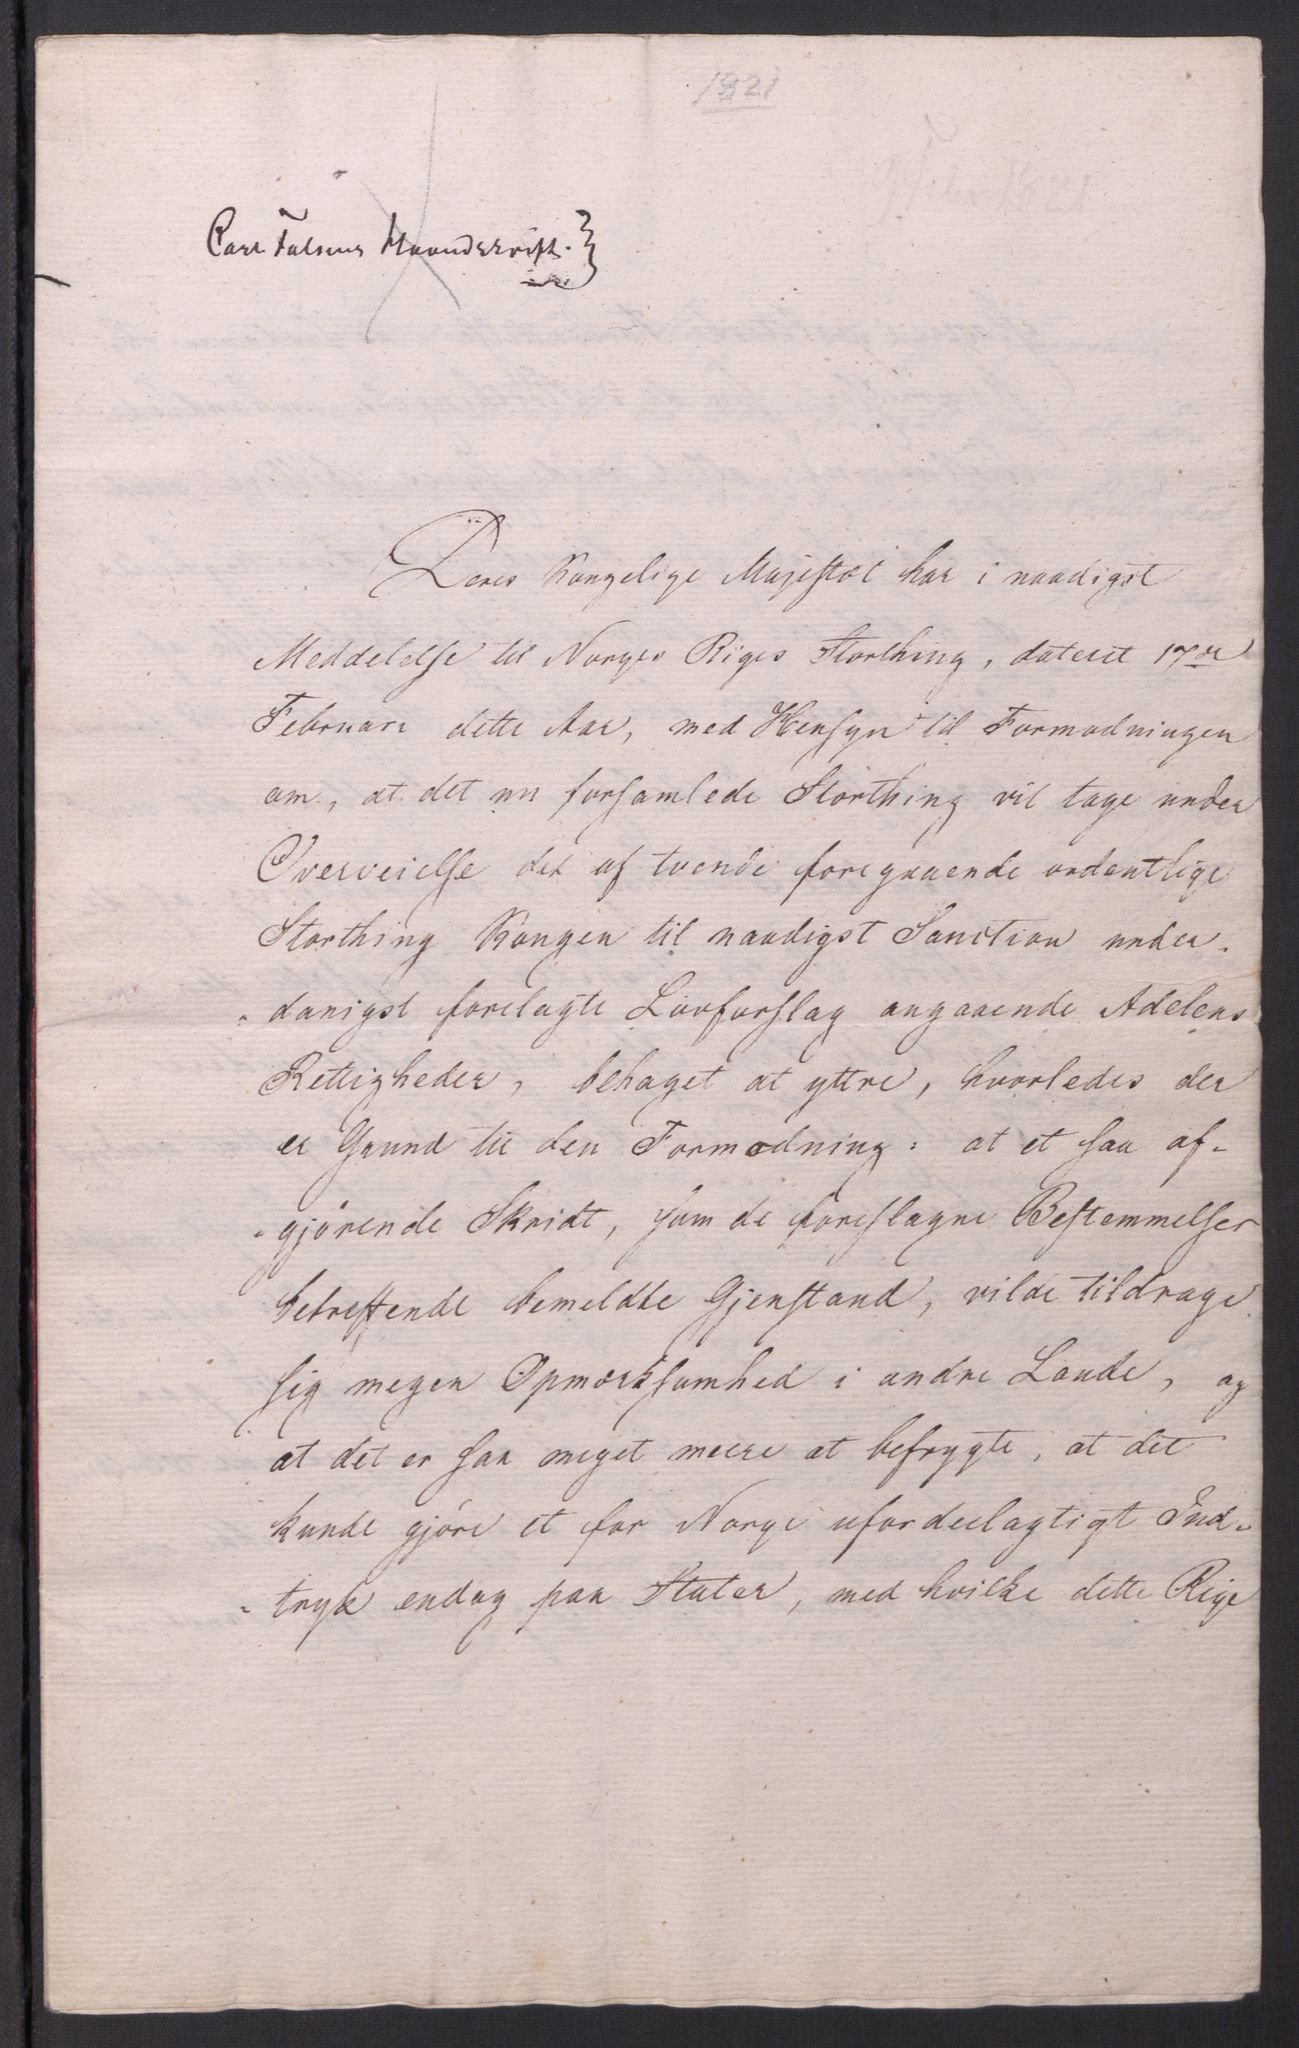 1821
Carl Falsens Haandskrift.
Deres Kongelige Majestæt har i naadigst
Meddelelse til Norges Riges Storthing, dateret 17de
Februari dette Aar, med Hensyn til Formodningen
om, at det nu forsamlede Storthing vil tage under
Overveielse det af tvende foregaaende ordentlige
Storthing Kongen til naadigst Sanction under-
danigst forelagte Lovforslag angaaende Adelens
Rettigheder, behaget at yttre, hvorledes der
er Grund til den Formodning: at et saa af-
gjörende Skridt, som de foreslagne Bestemmelser
betreffende bemeldte Gjenstand, vilde tildrage
sig megen Opmærksomhed i andre Lande, og
at det er saa meget meere at befrygte, at det
kunde gjöre et for Norge ufordeelagtigt Ind-
tryk endog paa Stater, med hvilke dette Rige